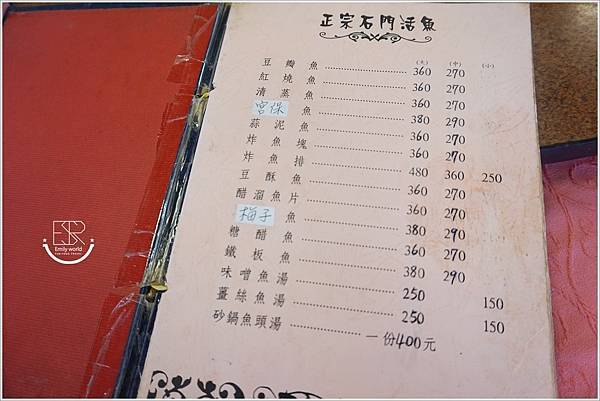 正宗石門活魚
(大) (中) (小)
豆瓣魚 360 270
紅燒魚 360 270
清蒸魚 360 270
宮保魚 380 290
蒜泥魚 360 270
炸魚塊 360 270
炸魚排 480 360 250
豆酥魚 360 270
醋溜魚片 360 270
梅子魚 380 290
糖醋魚 360 270
鐵板魚 380 290
味噌魚湯 250 150
薑絲魚湯 250 150
砂鍋魚頭湯 一份400元
Emily world